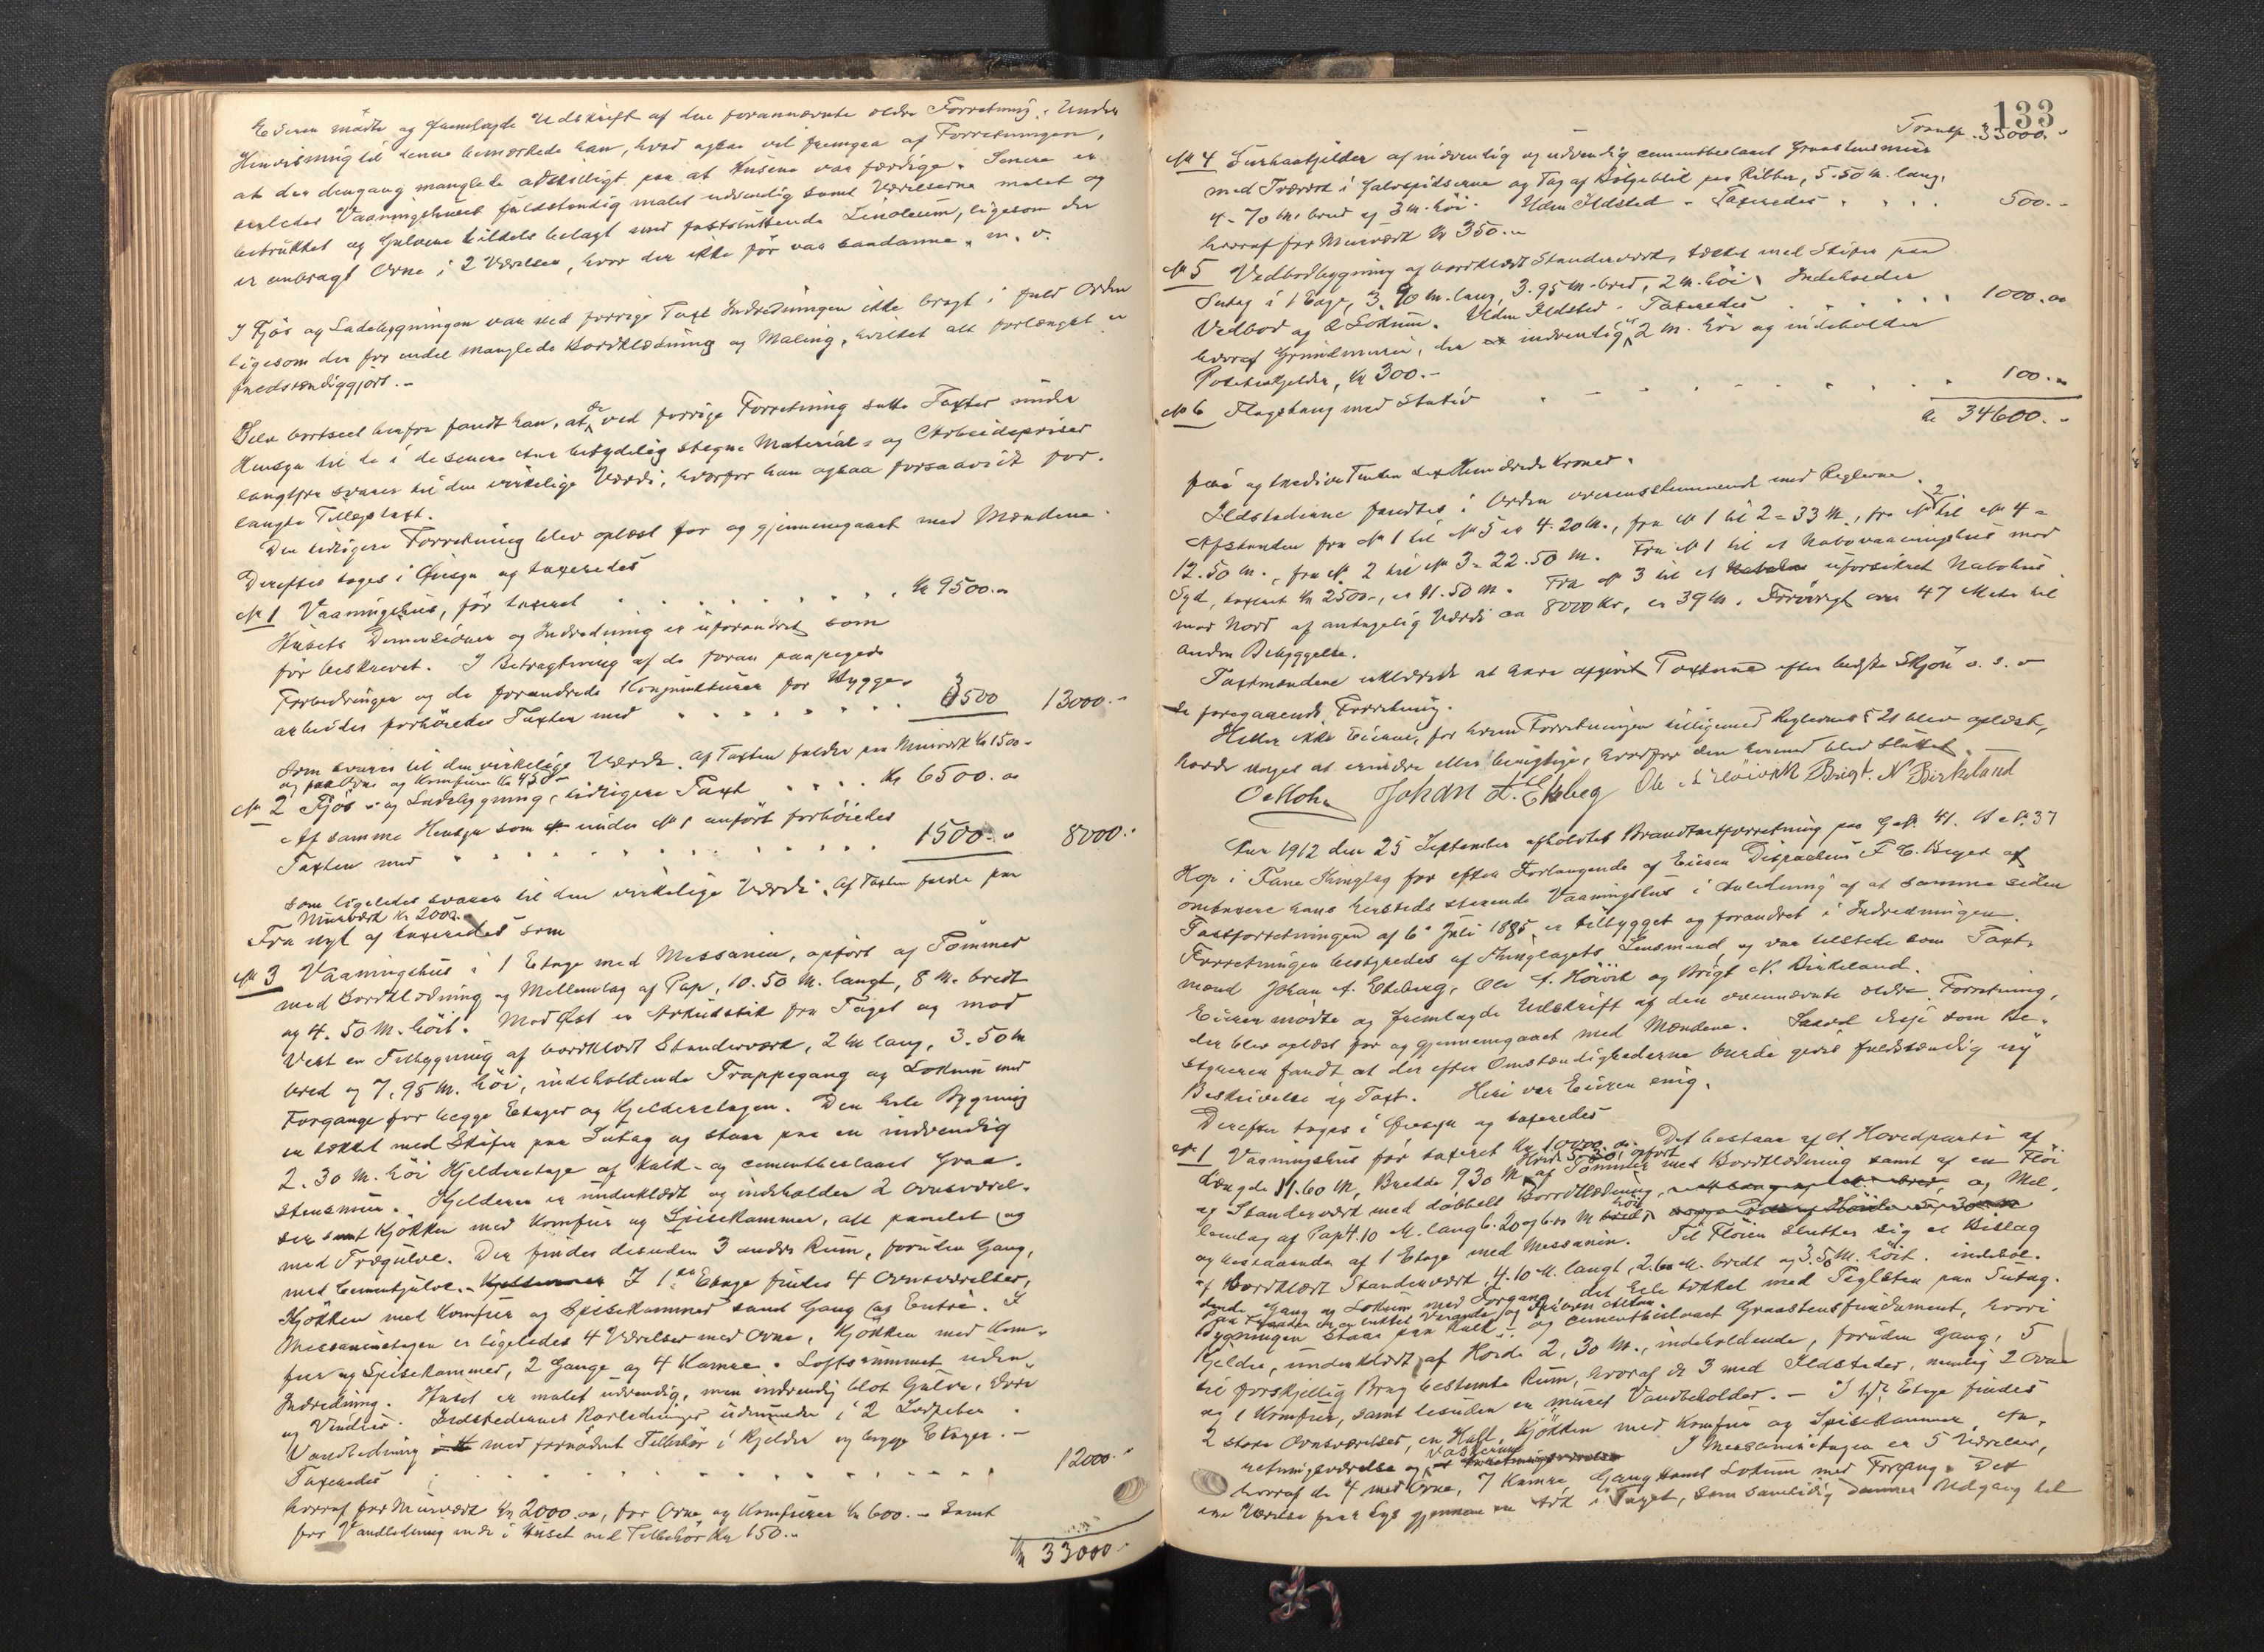 Eieren mødte og fremlagde Udskrift af den forannævnte ældre Forretning. Under
Henvisning til denne bemærkede han, hvad ogsaa vil fremgaa af Forretningen,
at der dengang manglede adskilligt paa at Husene var færdige. Senere er
saaledes Vaaningshuset fuldstændig malet udvendig samt Værelserne malet og
betrukket og Gulvene tildels belagt med fastsittende Linoleum, ligesom der
er anbragt Ovne i 2 Værelser, hvor der ikke før var saadanne, m. v.
I Fjøs og Ladebygningen var ved forrige Taxt Indredningen ikke bragt i fuld Orden
ligesom der for endel manglede Bordklædning og Maling, hvilket alt forlængst er
fuldstændiggjort.-
Selv bortseet herfra fandt han, at de ved forrige Forretning satte Taxter under
Hensyn til de i de senere Aar betydelig stegne Material- og Arbeidspriser
langtfra svarer til den virkelige Værdi, hvorfor han ogsaa forsaavidt for-
langte Tillægstaxt.
Den tidligere Forretning blev oplæst for og gjennemgaaet med Mændene.
Derefter toges i Øiesyn og taxeredes
No 1 Vaaningshus, før taxeret . . . . . . Kr 9500.00
Husets Dimensioner og Indredning er uforandret som
før beskrevet. I Betragtning af de foran paapegede
Forbedringer og de forandrede Konjunkturer for Bygge-
arbeider forhøiedes Taxten med . . . . . . 3500 13000.-
som svarer til den virkelige Værdi. Af Taxten falder paa Murværk Kr 1500.-
og paa Ovne og Komfurer Kr 450.-
No 2 Fjøs- og Ladebygning, tidligere Taxt . . . Kr 6500.00
Af samme Hensyn som under No 1 anført forhøiedes
Taxten med . . . . . . 1500.- 8000.-
som ligeledes svarer til den virkelige Værdi. Af Taxten falder paa
Murværk Kr 2000.-
Fra nyt af taxeredes som
No 3 Vaaningshus i 1 Etage med Messanin, opført af Tømmer
med Bordklædning og Mellemlag af Pap, 10.50 M. langt, 8 M. bredt
og 4.50 M. høit. Mod Øst er Arkudstik fra Taget og mod
Vest en Tilbygning af bordklædt Stenderværk, 2 M lang, 3.50 M
bred og 7.95 M. høi, indeholdende Trappegang og Lokum med
Forgange for begge Etager og Kjelderetagen. Den hele Bygning
er tækket med Skifer paa Sutag og staar paa en indvendig
2.30 M. høi Kjelderetage af kalk- og cementbeslaaet Graa-
stensmur. Kjelderen er underklædt og indeholder 2 Ovnsværel-
ser samt Kjøkken med Komfur og Spisekammer, alt panelet og
med Trægulve. Der findes desuden 3 andre Rum, foruden Gang,
med Cementgulve. I 1ste Etage findes 4 Ovnsværelser,
Kjøkken med Komfur og Spisekammer samt Gang og Entré. I
Messaninetagen er ligeledes 4 Værelser med Ovne, Kjøkken med Kom-
fur og Spisekammer, 2 Gange og 4 Kamre. Loftsrummet uden
Indredning. Huset er malet udvendig, men indvendig blot Gulve, Døre
og Vinduer. Ildstedernes Rørledninger udmunder i 2 Lufpiber.
Vandledning med fornødent Tilbehør i Kjelder og begge Etager.-
Taxeredes . . . . . . 12000.-
hvoraf for Murværk Kr 2000.00, for Ovne og Komfurer Kr 600.- samt
for Vandledning inde i Huset med Tilbehør Kr 150.-
Kr 33000.-
133
Transp. 33000.-
No 4 af indvendig og udvendig cementbeslaaet Graastensmur
med Træværk i Gavlspidserne og Tag af Bølgeblik paa Ribber, 5.50 M. lang,
4.70 M. bred og 3 M. høi. Uden Ildsted. Taxeredes . . . . 500.-
hvoraf for Murværk Kr 350.-
No 5 Vedbodbygning af bordklædt Stenderværk, tækket med Skifer paa
Sutag i 1 Etage, 3.90 M. lang, 3.95 M. bred, 2 M. høi. Indeholder
Vedbod og 2 Lokum. Uden Ildsted. Taxeredes . . . . . . 1000.00
hvoraf Grundmuren, der indvendig er 2 M. høi og indeholder
Poteteskjelder, Kr 300.-
No 6 Flagstang med Stativ . . . . . . 100.-
Kr 34600.-
fire og tredive Tusen sex Hundrede Kroner.
Ildstederne fandtes i Orden overensstemmende med Reglerne.
Afstanden fra No 1 til No 5 er 4.20 M., fra No 1 til 2 = 33 M., fra No 2 til No 4 =
12.50 M., fra No 2 til No 3 = 22.50 M. Fra No 1 til et Nabovaaningshus mod
Syd, taxeret Kr 2500.-, er 11.50 M. Fra No 3 til et uforsikret Nabohus
mod Nord af antagelig Værdi ca 8000 Kr, er 39 M. Forøvrigt over 47 Meter til
anden Bebyggelse.
Taxtmændene erklærede at have afgivet Taxterne efter bedste Skjøn o. s. v
foregaaende Forretning.
Heller ikke Eieren, for hvem Forretningen tilligemed Reglernes § 21 blev oplæst,
havde noget at erindre eller berigtige, hvorfor den hermed blev sluttet.
Johan A. Ekeberg Ole A Høivik Brigt. N Birkeland
Aar 1912 den 25 September afholdtes Brandtaxtforretning paa G.No. 41. B.No. 37
Hop i Fane Thinglag for efter Forlangende af Eieren Dispachør F. C. Beyer at
omtaxere hans hersteds staaende Vaaningshus i Anledning af at samme siden
Taxtforretningen af 6. Juli 1885 er tilbygget og forandret i Indredningen.
Forretningen bestyredes af Thinglagets Lensmand, og var tilstede som Taxt-
mænd Johan A. Ekeberg, Ole A. Høivik og Brigt N. Birkeland.
Eieren mødte og fremlagde Udskrift af den ovennævnte ældre Forretning,
der blev oplæst for og gjennemgaaet med Mændene. Saavel disse som Be-
styreren fandt at der efter Omstændighederne burde gives fuldstændig ny
Beskrivelse og Taxt. Heri var Eieren enig.
Derefter toges i Øiesyn og taxeredes
No 1 Vaaningshus før taxeret Kr 10000.00. Det bestaar af et Hovedparti af
Længde 11.60 M, Bredde 9.30 M, Høide 5.30, opført af Tømmer med Bordklædning samt af en Fløi
af Stenderværk med dobbelt Bordklædning, og Mel-
lemlag af Pap 4.10 M. lang 6.20 og M høi
og bestaaende af 1 Etage med Messanin. Til Fløien slutter sig et Bislag
af bordklædt Stenderværk, 4.10 M. langt, 2.60 M. bredt og 3.50 M. høit, indehol-
dende Gang og Lokum med Forgang, det hele tækket med Teglsten paa Sutag.
Paa Façaden er en lukket Veranda og Altan.
Bygningen staar paa kalk- og cementbeslaaet Graastensfundament, hvori
Kjelder, underklædt af Høide 2.30 M., indeholdende, foruden Gang, 5
til forskjellig Brug bestemte Rum, hvoraf de 3 med Ildsteder, nemlig 2 Ovne
og 1 Komfur, samt desuden en muret Vandbeholder. - I 1ste Etage findes
2 store Ovnsværelser, en Hall, Kjøkken med Komfur og Spisekammer, An-
retningsværelse og Vaskerum. I Messaninetagen er 5 Værelser,
hvoraf de 4 med Ovne, 7 Kamre, Gang samt Lokum med Forgang. Det
ene Værelse faar Lys gjennem en Ark i Taget, som samtidig danner Udgang til